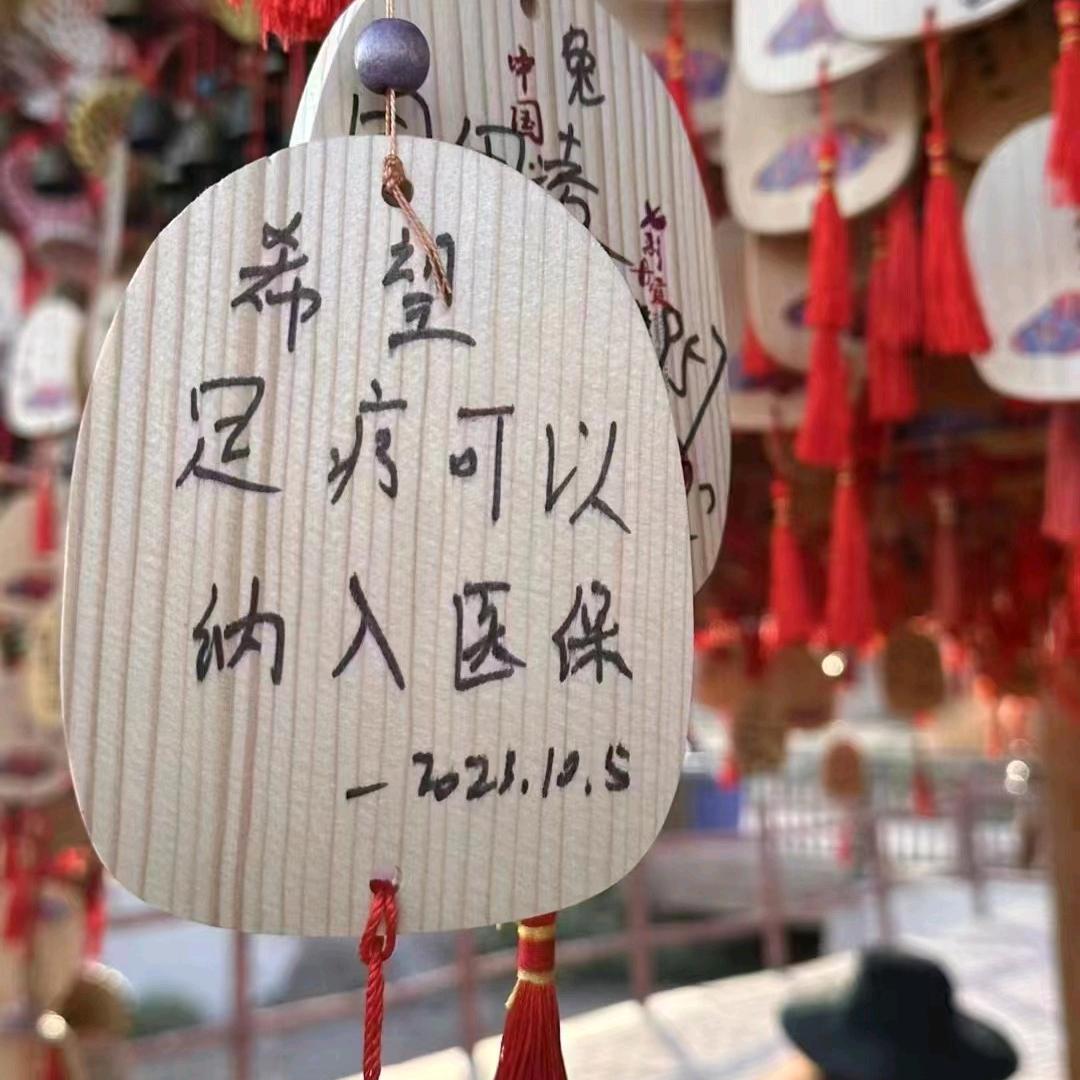 希望
足疗可以
纳入医保
-2023.10.5
兔
中国